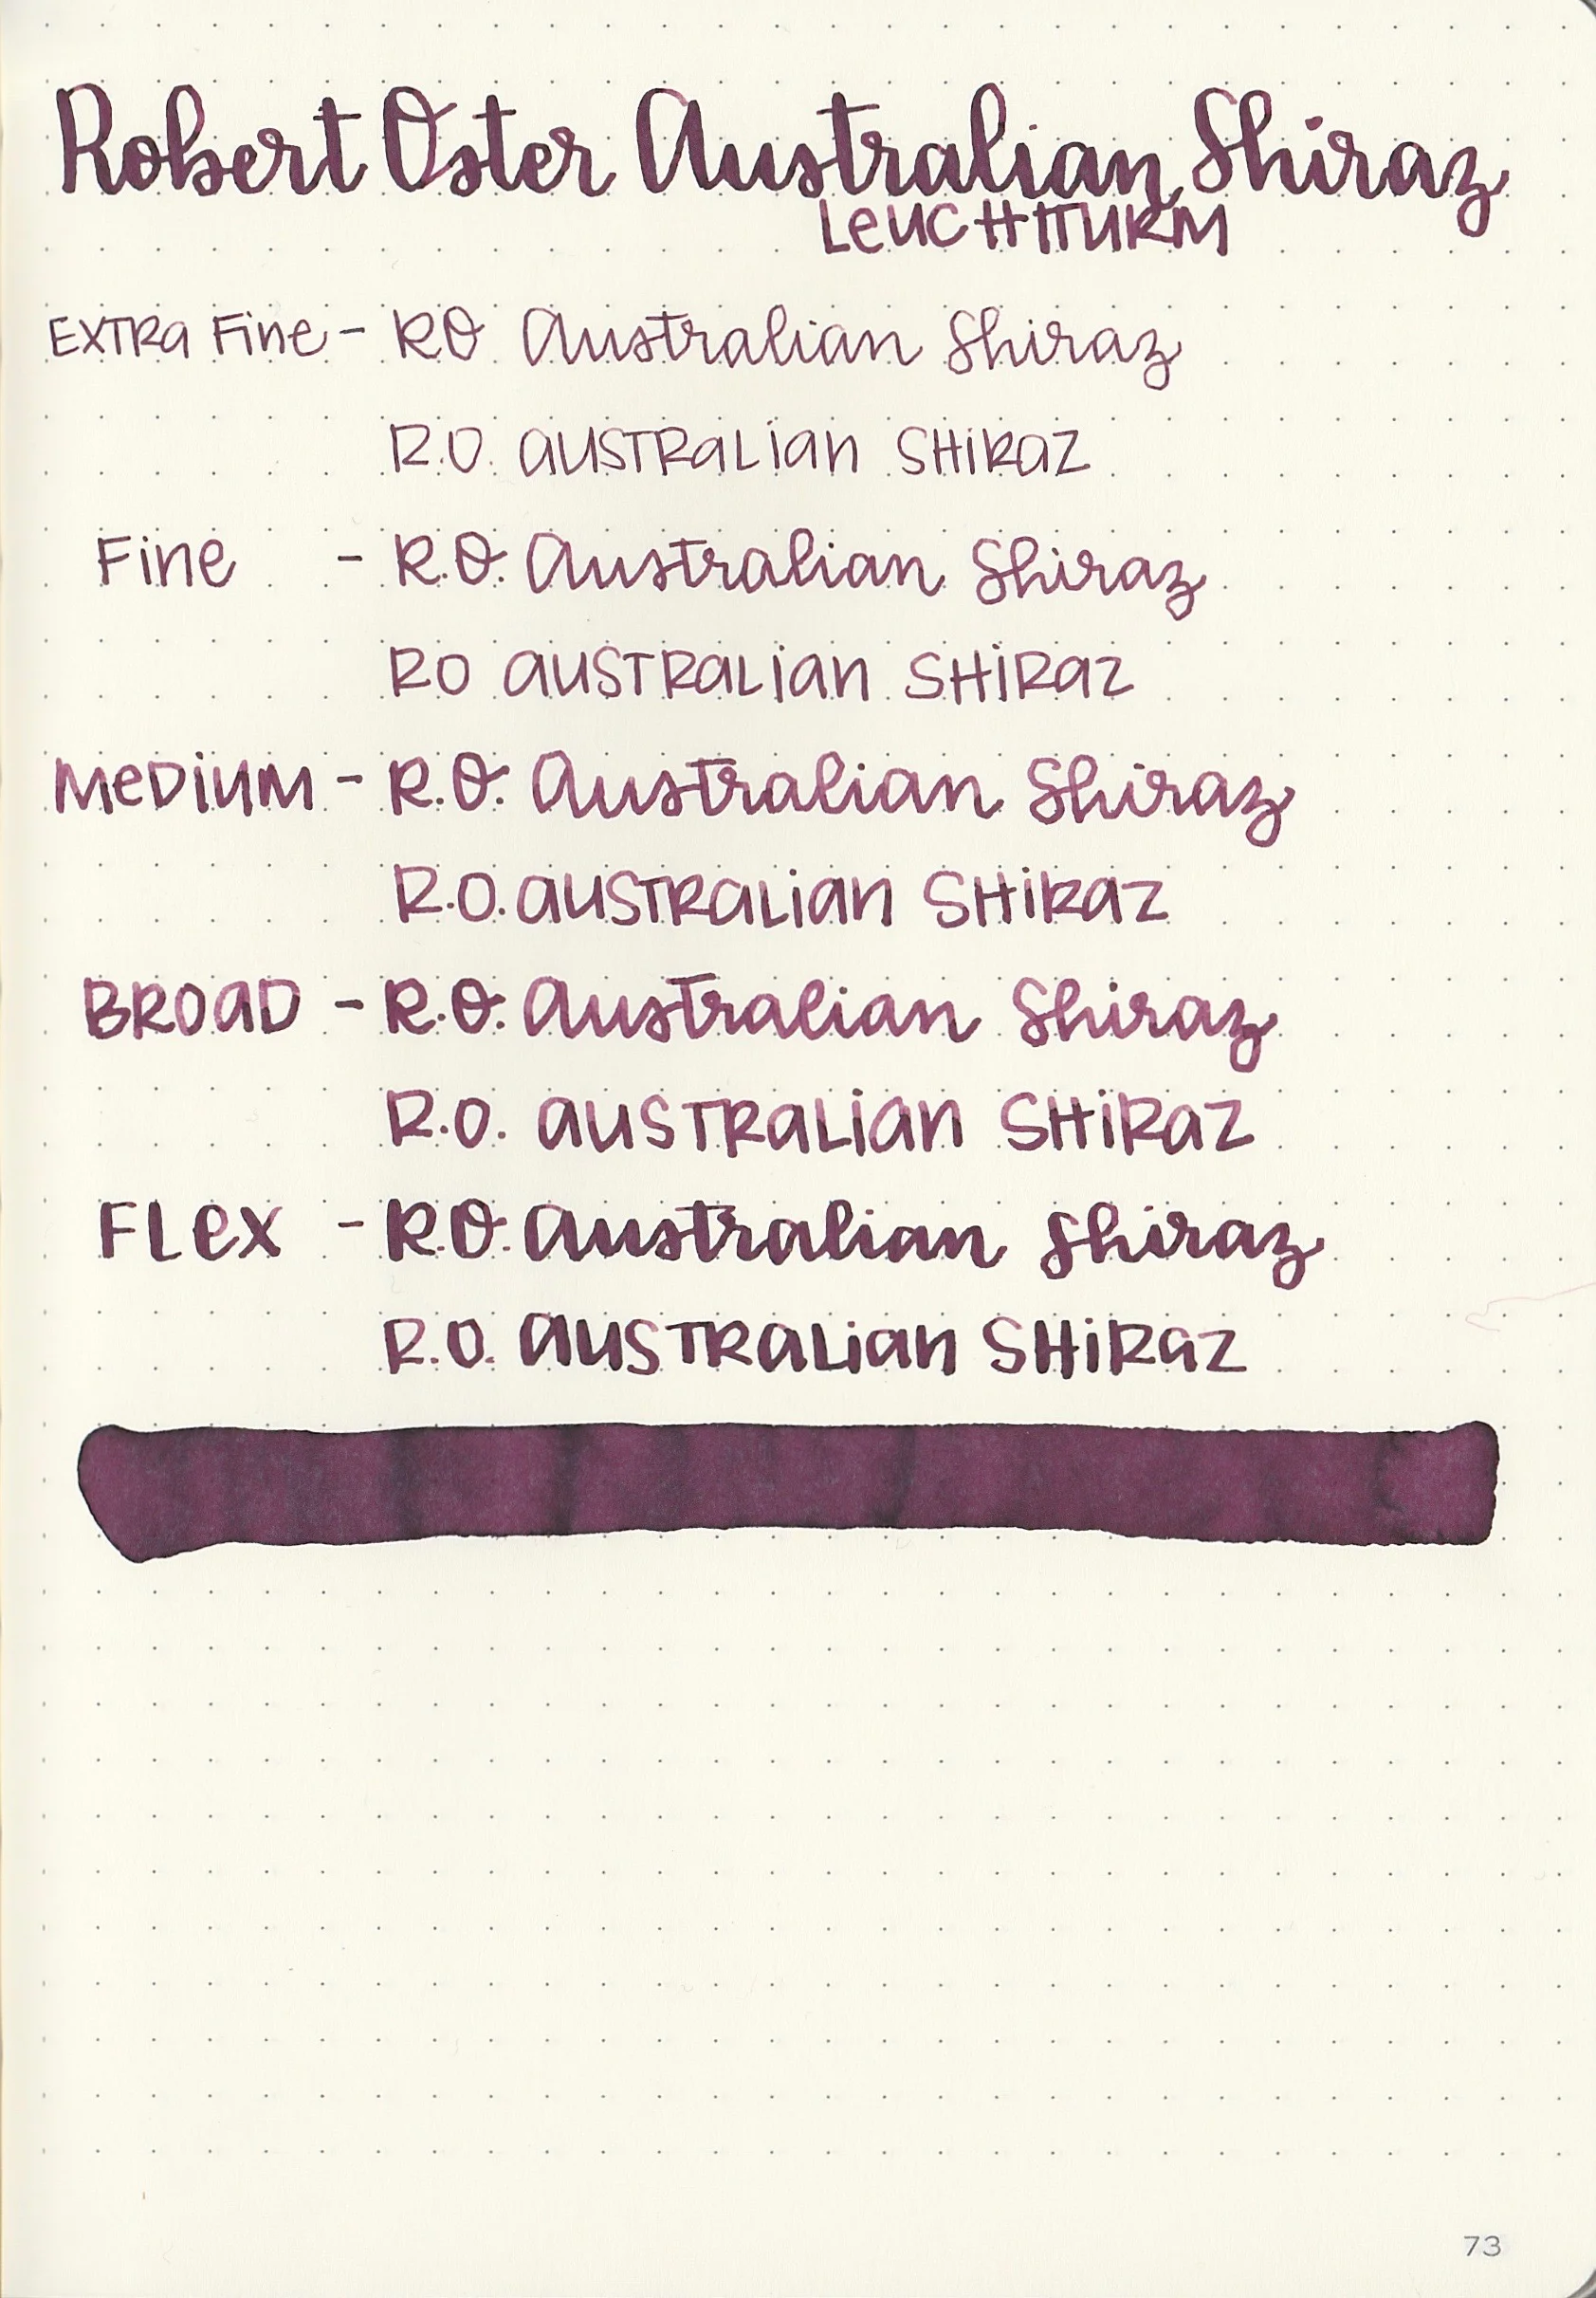 Robert Oster Australian Shiraz
LEUCHTTURM
EXTRA Fine - RO Australian Shiraz
R.O. AUSTRALian SHiRaZ
Fine - R.O. Australian Shiraz
RO AUSTRALian SHiRaz
MeDiUM - R.O. Australian Shiraz
R.O. AUSTRALian SHiRaz
BROAD - R.O. Australian Shiraz
R.O. AUSTRALian SHiRaZ
FLex - R.O. Australian Shiraz
R.O. AUSTRALian SHiRaZ
73